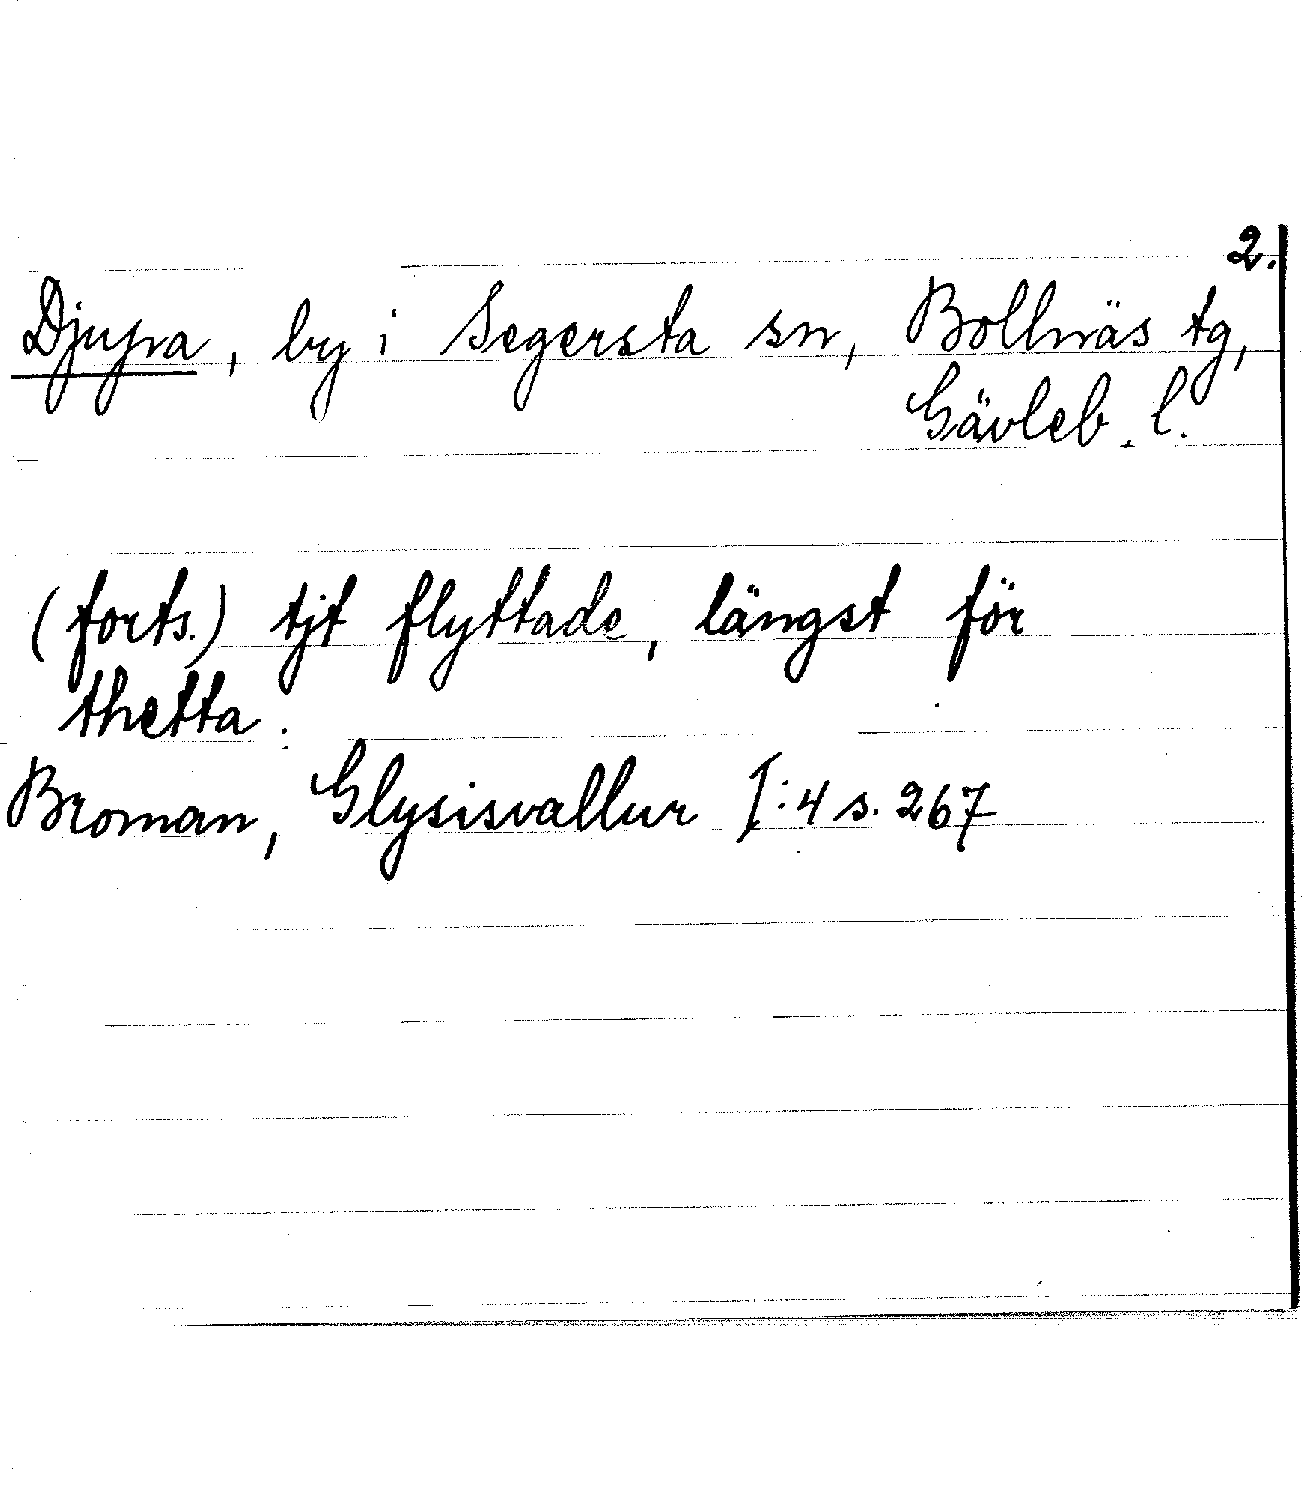 2.
Djupa, by i Segersta sn, Bollnäs tg,
Gävleb. l.
(forts.) tjt flyttade, längst för
thetta.
Broman, Glysisvallur I:4 s. 267